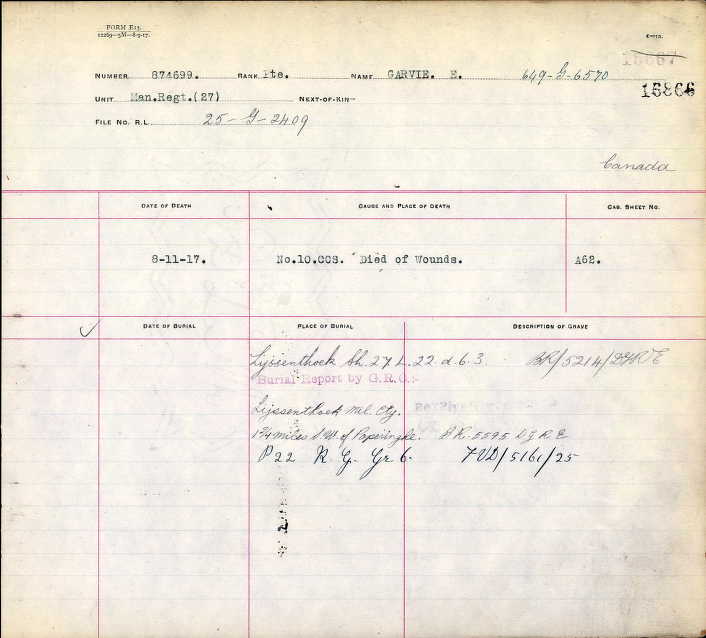 FORM E13.
12269-5M-8-9-17.
15867
NUMBER 874699. RANK Pte. NAME GARVIE. E. 649-G-6570
15866
UNIT Man.Regt.(27) NEXT-OF-KIN-
FILE NO. R.L. 25-G-2409
Canada
DATE OF DEATH CAUSE AND PLACE OF DEATH CAS. SHEET NO.
8-11-17. No.10.CCS. Died of Wounds. A62.
DATE OF BURIAL PLACE OF BURIAL DESCRIPTION OF GRAVE
Lijssenthoek Sh. 27 L. 22. d. 6. 3. BR/5214/DGR&E
Burial Report by G.R.O:-
Lijssenthoek Mil. Cty.
1¾ miles S.W. of Poperinghe. B.R. 5595 D G R E
P 22 R. G. Gr 6. FVD/5161/25